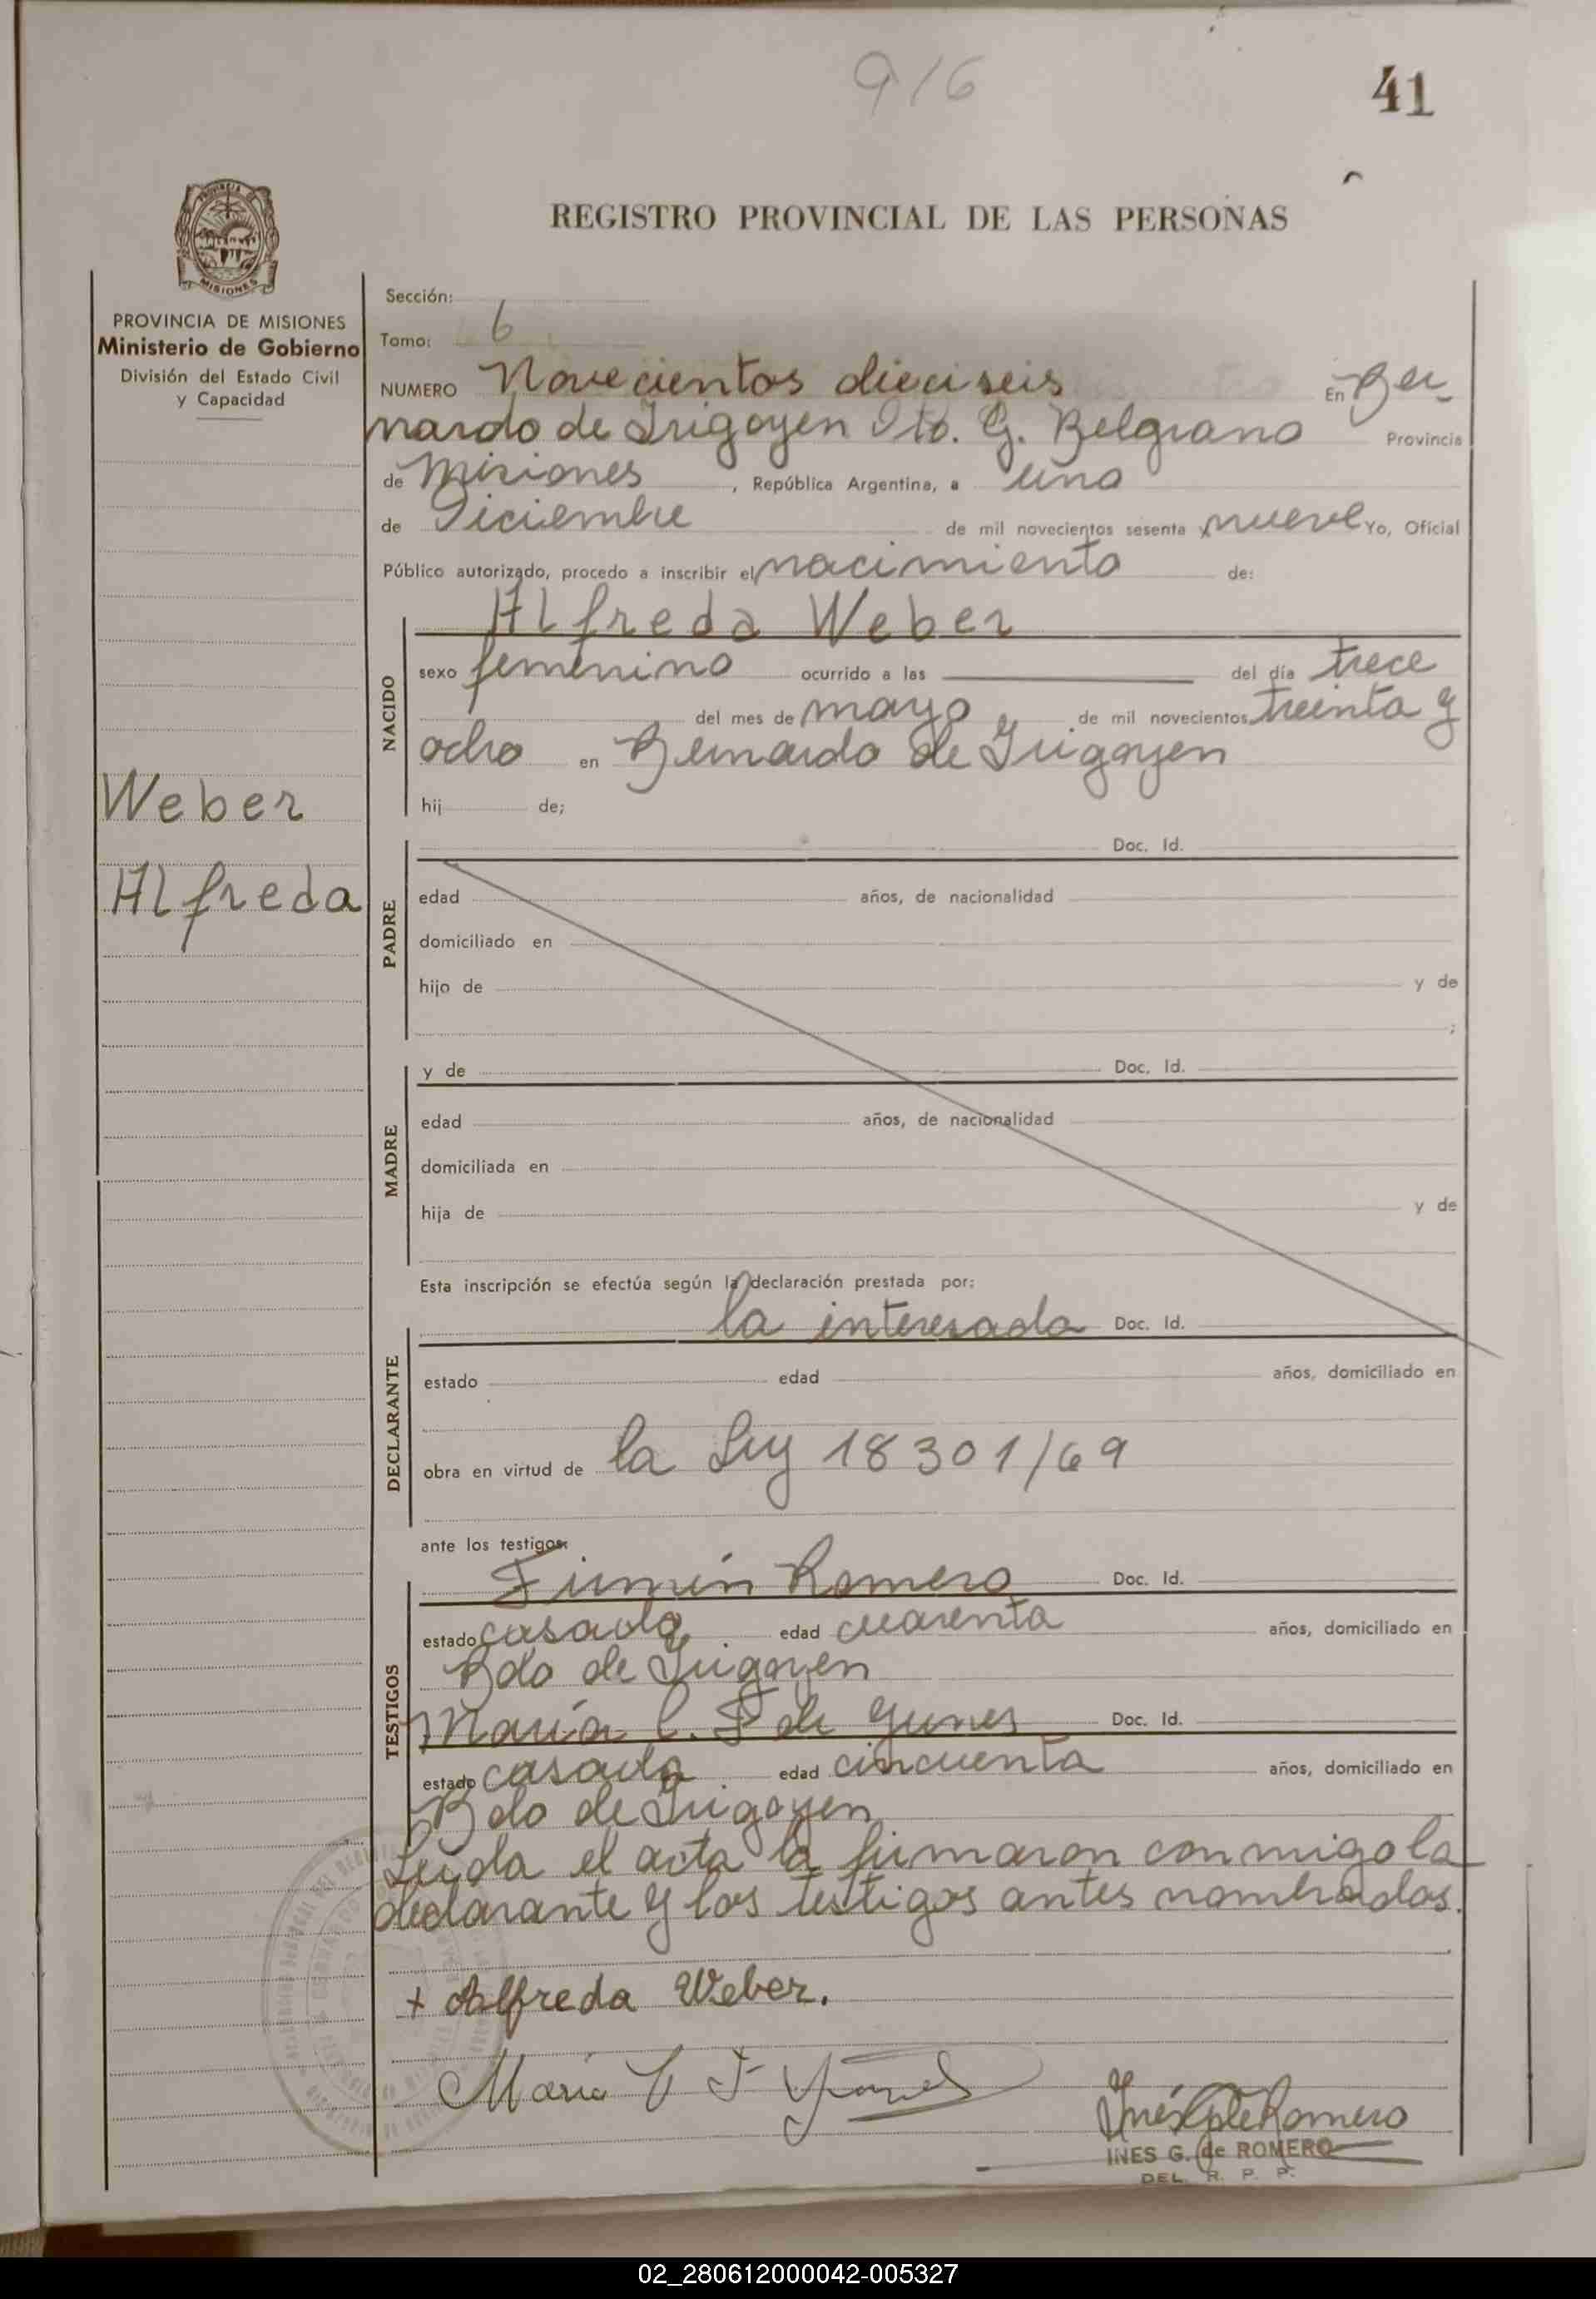 916
41
REGISTRO PROVINCIAL DE LAS PERSONAS
PROVINCIA DE MISIONES
Ministerio de Gobierno
División del Estado Civil
y Capacidad
Weber
Alfreda
Sección:
Tomo: 6
NUMERO Novecientos dieciseis En Ber_
nardo de Irigoyen Dto. G. Belgrano Provincia
de Misiones, República Argentina, a uno
de Diciembre de mil novecientos sesenta y nueve Yo, Oficial
Público autorizado, procedo a inscribir el nacimiento de:
NACIDO
Alfreda Weber
sexo femenino ocurrido a las del día trece
del mes de mayo de mil novecientos treinta y
ocho en Bernardo de Irigoyen
hij de;
PADRE
Doc. Id.
edad años, de nacionalidad
domiciliado en
hijo de y de
;
MADRE
y de Doc. Id.
edad años, de nacionalidad
domiciliada en
hija de y de
Esta inscripción se efectúa según la declaración prestada por:
DECLARANTE
la interesada Doc. Id.
estado edad años, domiciliado en
obra en virtud de la Ley 18301/69
ante los testigos:
TESTIGOS
Firmín Romero Doc. Id.
estado casado edad cuarenta años, domiciliado en
Bdo de Irigoyen
María C. F de Yunes Doc. Id.
estado casada edad cincuenta años, domiciliado en
Bdo de Irigoyen
Leída el acta la firmaron conmigo la
declarante y los testigos antes nombrados.
+ Alfreda Weber.
María C F Yunes
Inés G de Romero
INES G. de ROMERO
DEL. R. P. P.
02_280612000042-005327